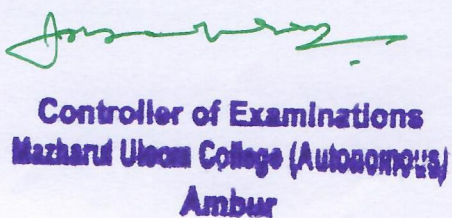 Controller of Examinations
Mazharul Uloom College (Autonomous)
Ambur